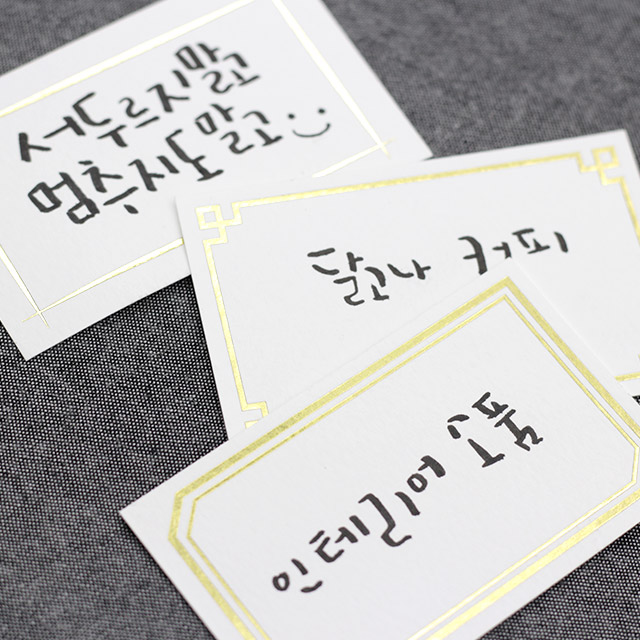 서두르지말고
멈추지도 말고
달고나 커피
인테리어 소품